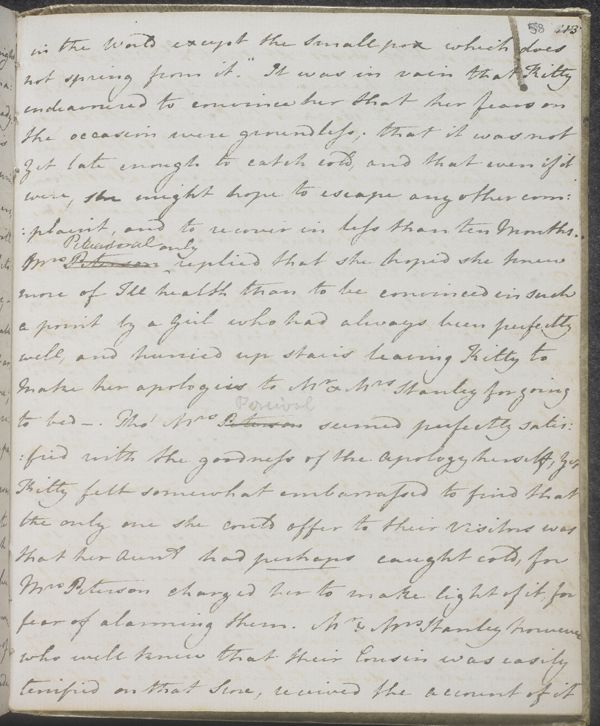 58 113
in the World except the Small pox which does
not spring from it." It was in vain that Kitty
endeavoured to convince her that her fears on
the occasion were groundless; that it was not
yet late enough to catch cold, and that even if it
were, she might hope to escape any other com:
:plaint, and to recover in less than ten Months.
Percival only
Mrs Peterson replied that she hoped she knew
more of Ill health than to be convinced in such
a point by a Girl who had always been perfectly
well, and hurried up stairs leaving Kitty to
make her apologies to Mr & Mrs Stanley for going
Percival
to bed—. Tho' Mrs Peterson seemed perfectly satis:
:fied with the goodness of the Apology herself, Yet
Kitty felt somewhat embarrassed to find that
the only one she could offer to their Visitors was
that her Aunt had perhaps caught cold, for
Mrs Peterson charged her to make light of it, for
fear of alarming them. Mr & Mrs Stanley however
who well knew that their Cousin was easily
terrified on that Score, received the account of it